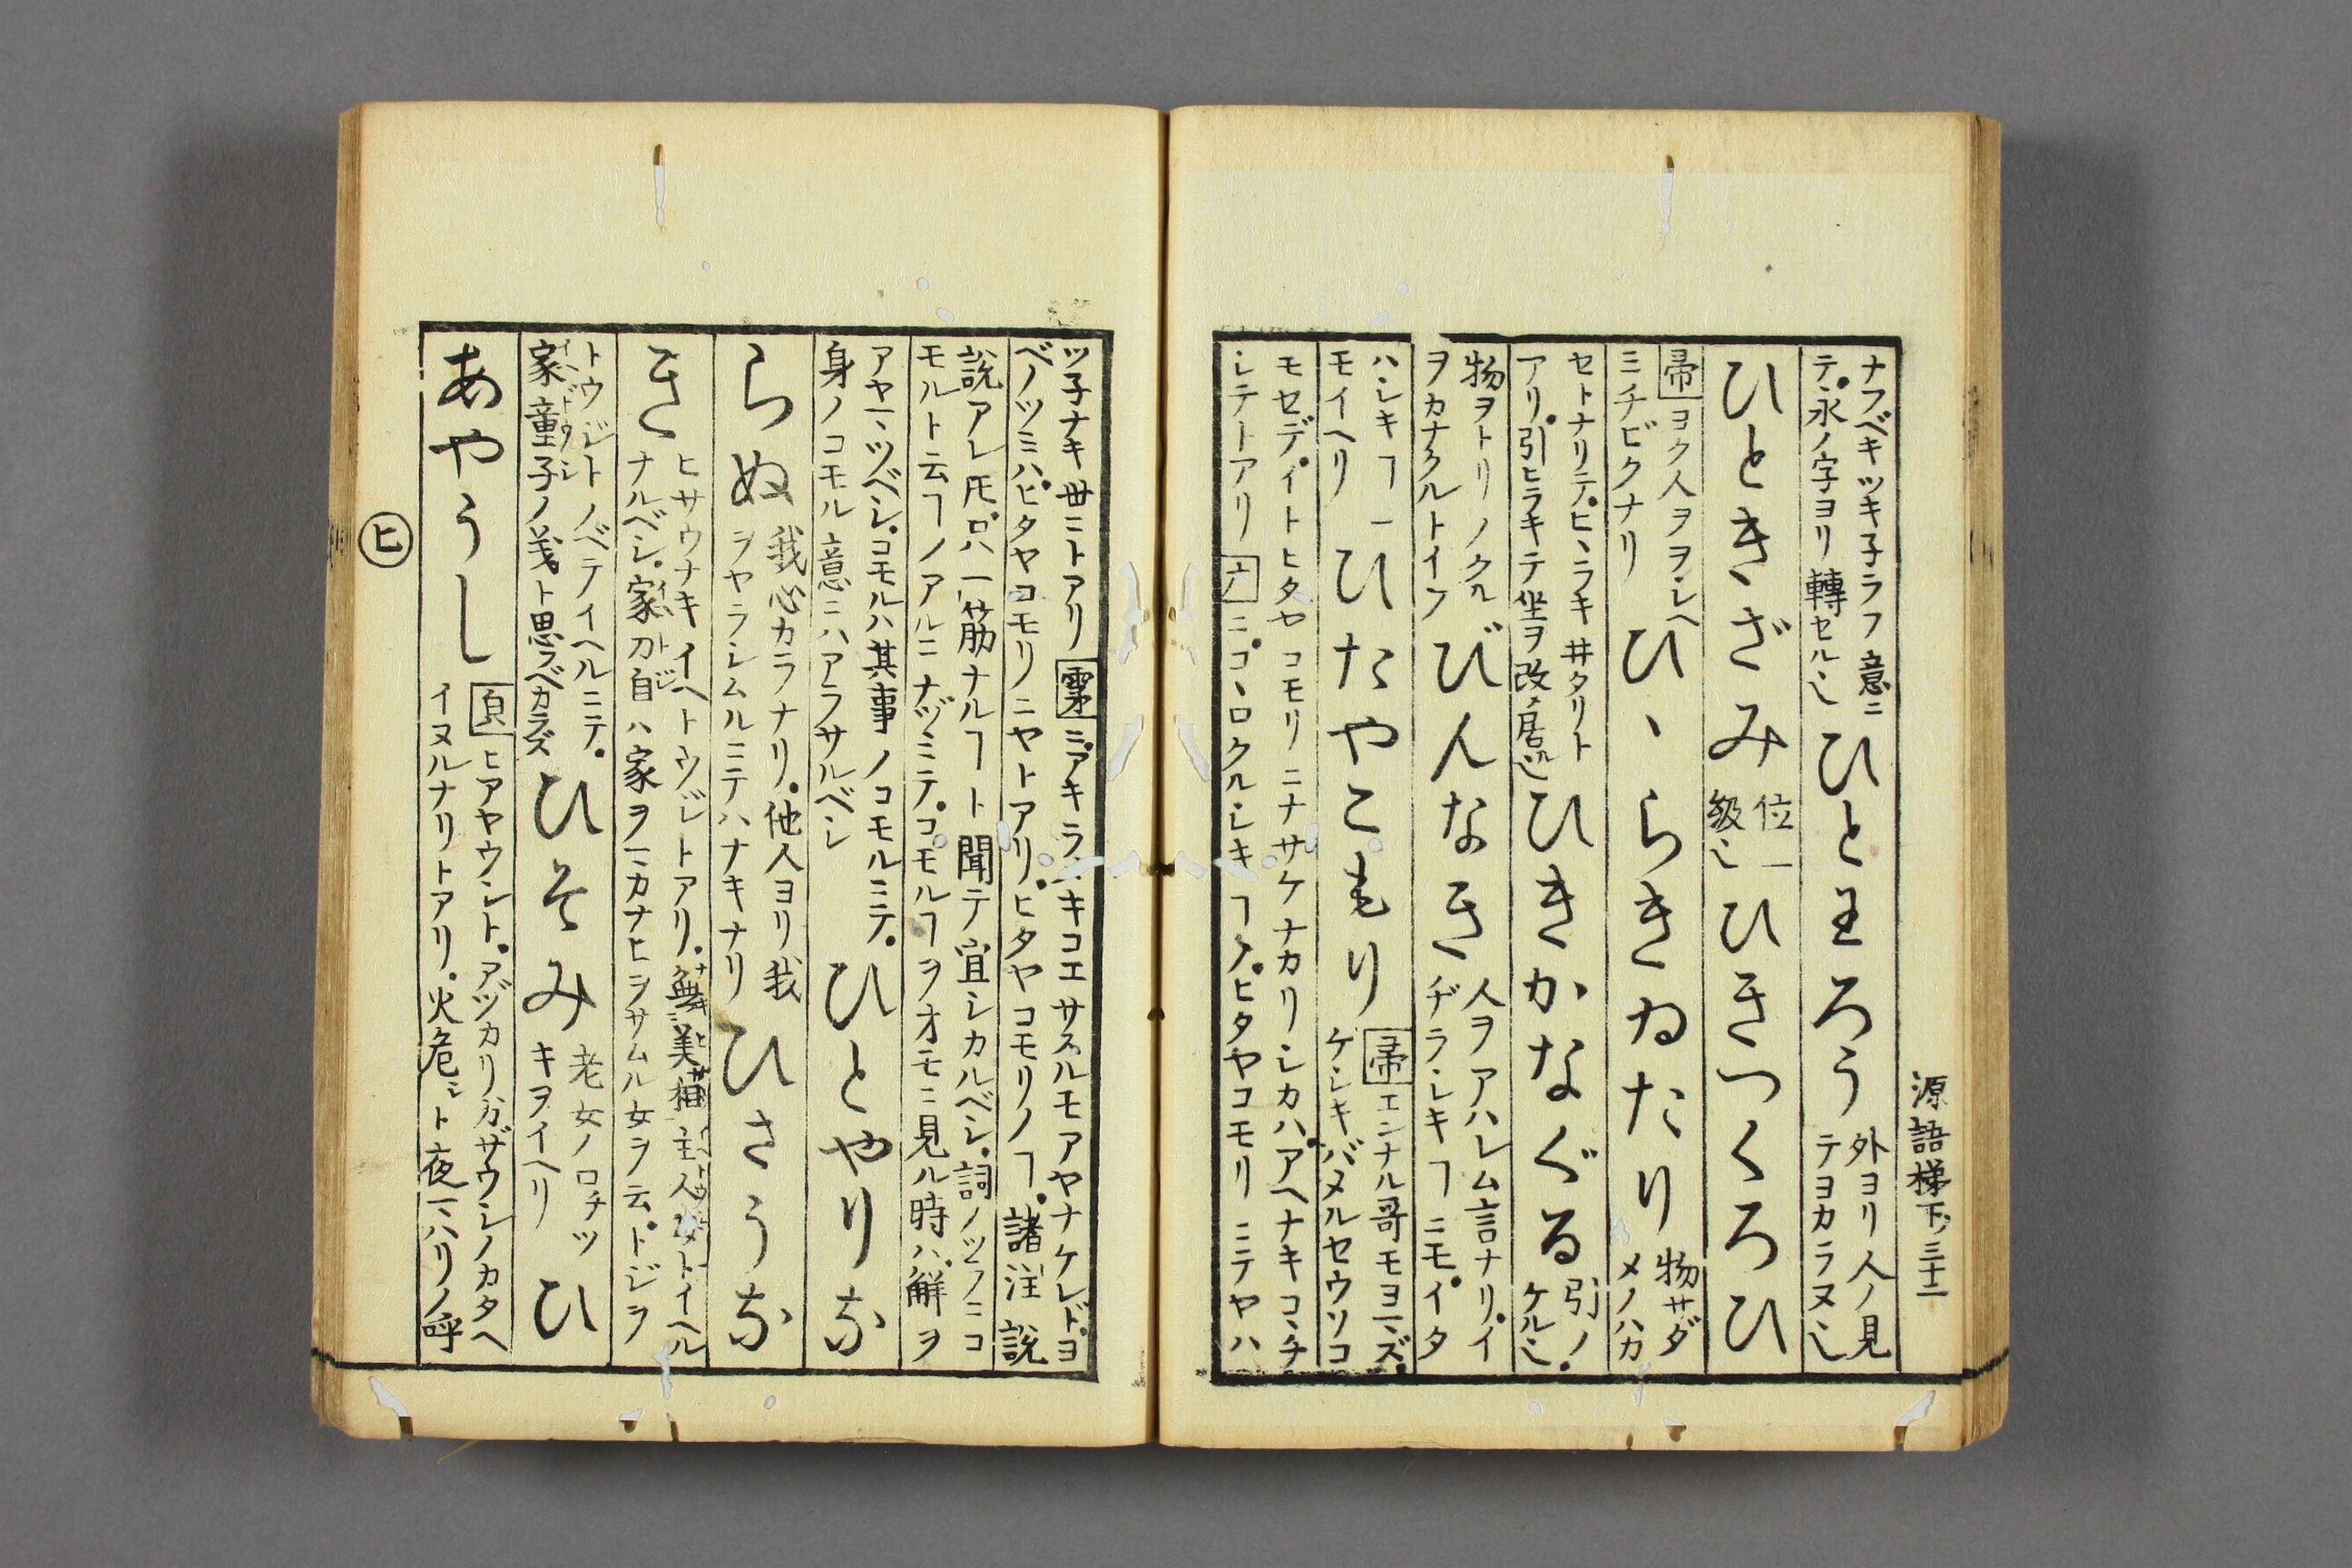 源語梯下ノ三十二
ナフベキツキ子ラフ意ニ
テ永ノ字ヨリ轉セル也
ひとわろう
外ヨリ人ノ見
テヨカラヌ也
ひときざみ
位一
級也
ひきつくろひ
帚ヨク人ヲヲシヘ
ミチビクナリ
ひヽらきゐたり
物サダ
メノハカ
セトナリテヒヽラキ井タリト
アリ引ヒラキテ坐ヲ改メ居ル也
ひきかなぐる
引ノ
ケル也
物ヲトリノクル
ヲカナクルトイフ
びんなき
人ヲアハレム言ナリイ
ヂラシキヿニモイタ
ハシキヿニ
モイヘリ
ひたやこもり
帚エンナル哥モヨマズ
ケシキバメルセウソコ
モセデイトヒタヤコモリニナサケナカリシカバアヘナキコヽチ
シテトアリ
ニコヽロクルシキヿノヒタヤコモリニテヤハ
ツ子ナキ世ニトアリ
ニアキラヽキコエサスルモアヤナケレドヨ
ベノツミハヒタヤコモリニヤトアリヒタヤコモリノヿ諸注説
説アレ𪜈只一筋ナルヿト聞テ宜シカルベシ詞ノツフニコ
モルト云フノアルニナヅミテコモルヿヲオモニ見ル時ハ解ヲ
アヤマツベシコモルハ其事ノコモルミテ
身ノコモル意ニハアラサルベシ
ひとやりな
らぬ
我心カラナリ他人ヨリ我
ヲヤラシムルニテハナキナリ
ひさうな
き
ヒサウナキイヘトウジトアリ無美相主人女トイヘル
ナルベシ家刀自ハ家ヲマカナヒヲサムル女ヲ云トジヲ
トウジトノベテイヘルニテ
家童子ノ義ト思フベカラズ
ひそみ
老女ノロチツ
キヲイヘリ
ひ
あやうし
ヒアヤウシトアヅカリガザウシノカタヘ
イヌルナリトアリ火危シト夜マハリノ呼
ヒ